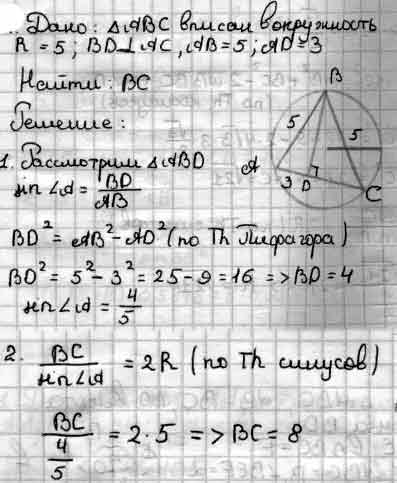 Дано: △ABC вписан в окружность
R = 5; BD⊥AC, AB = 5; AD = 3
Найти: BC
Решение:
1. Рассмотрим △ABD
sin∠A = BD/AB
BD² = AB² - AD² (по Th Пифагора)
BD² = 5² - 3² = 25 - 9 = 16 => BD = 4
sin∠A = 4/5
B
5
5
A
3
D
C
2. BC/sin∠A = 2R (по Th синусов)
BC/(4/5) = 2·5 => BC = 8